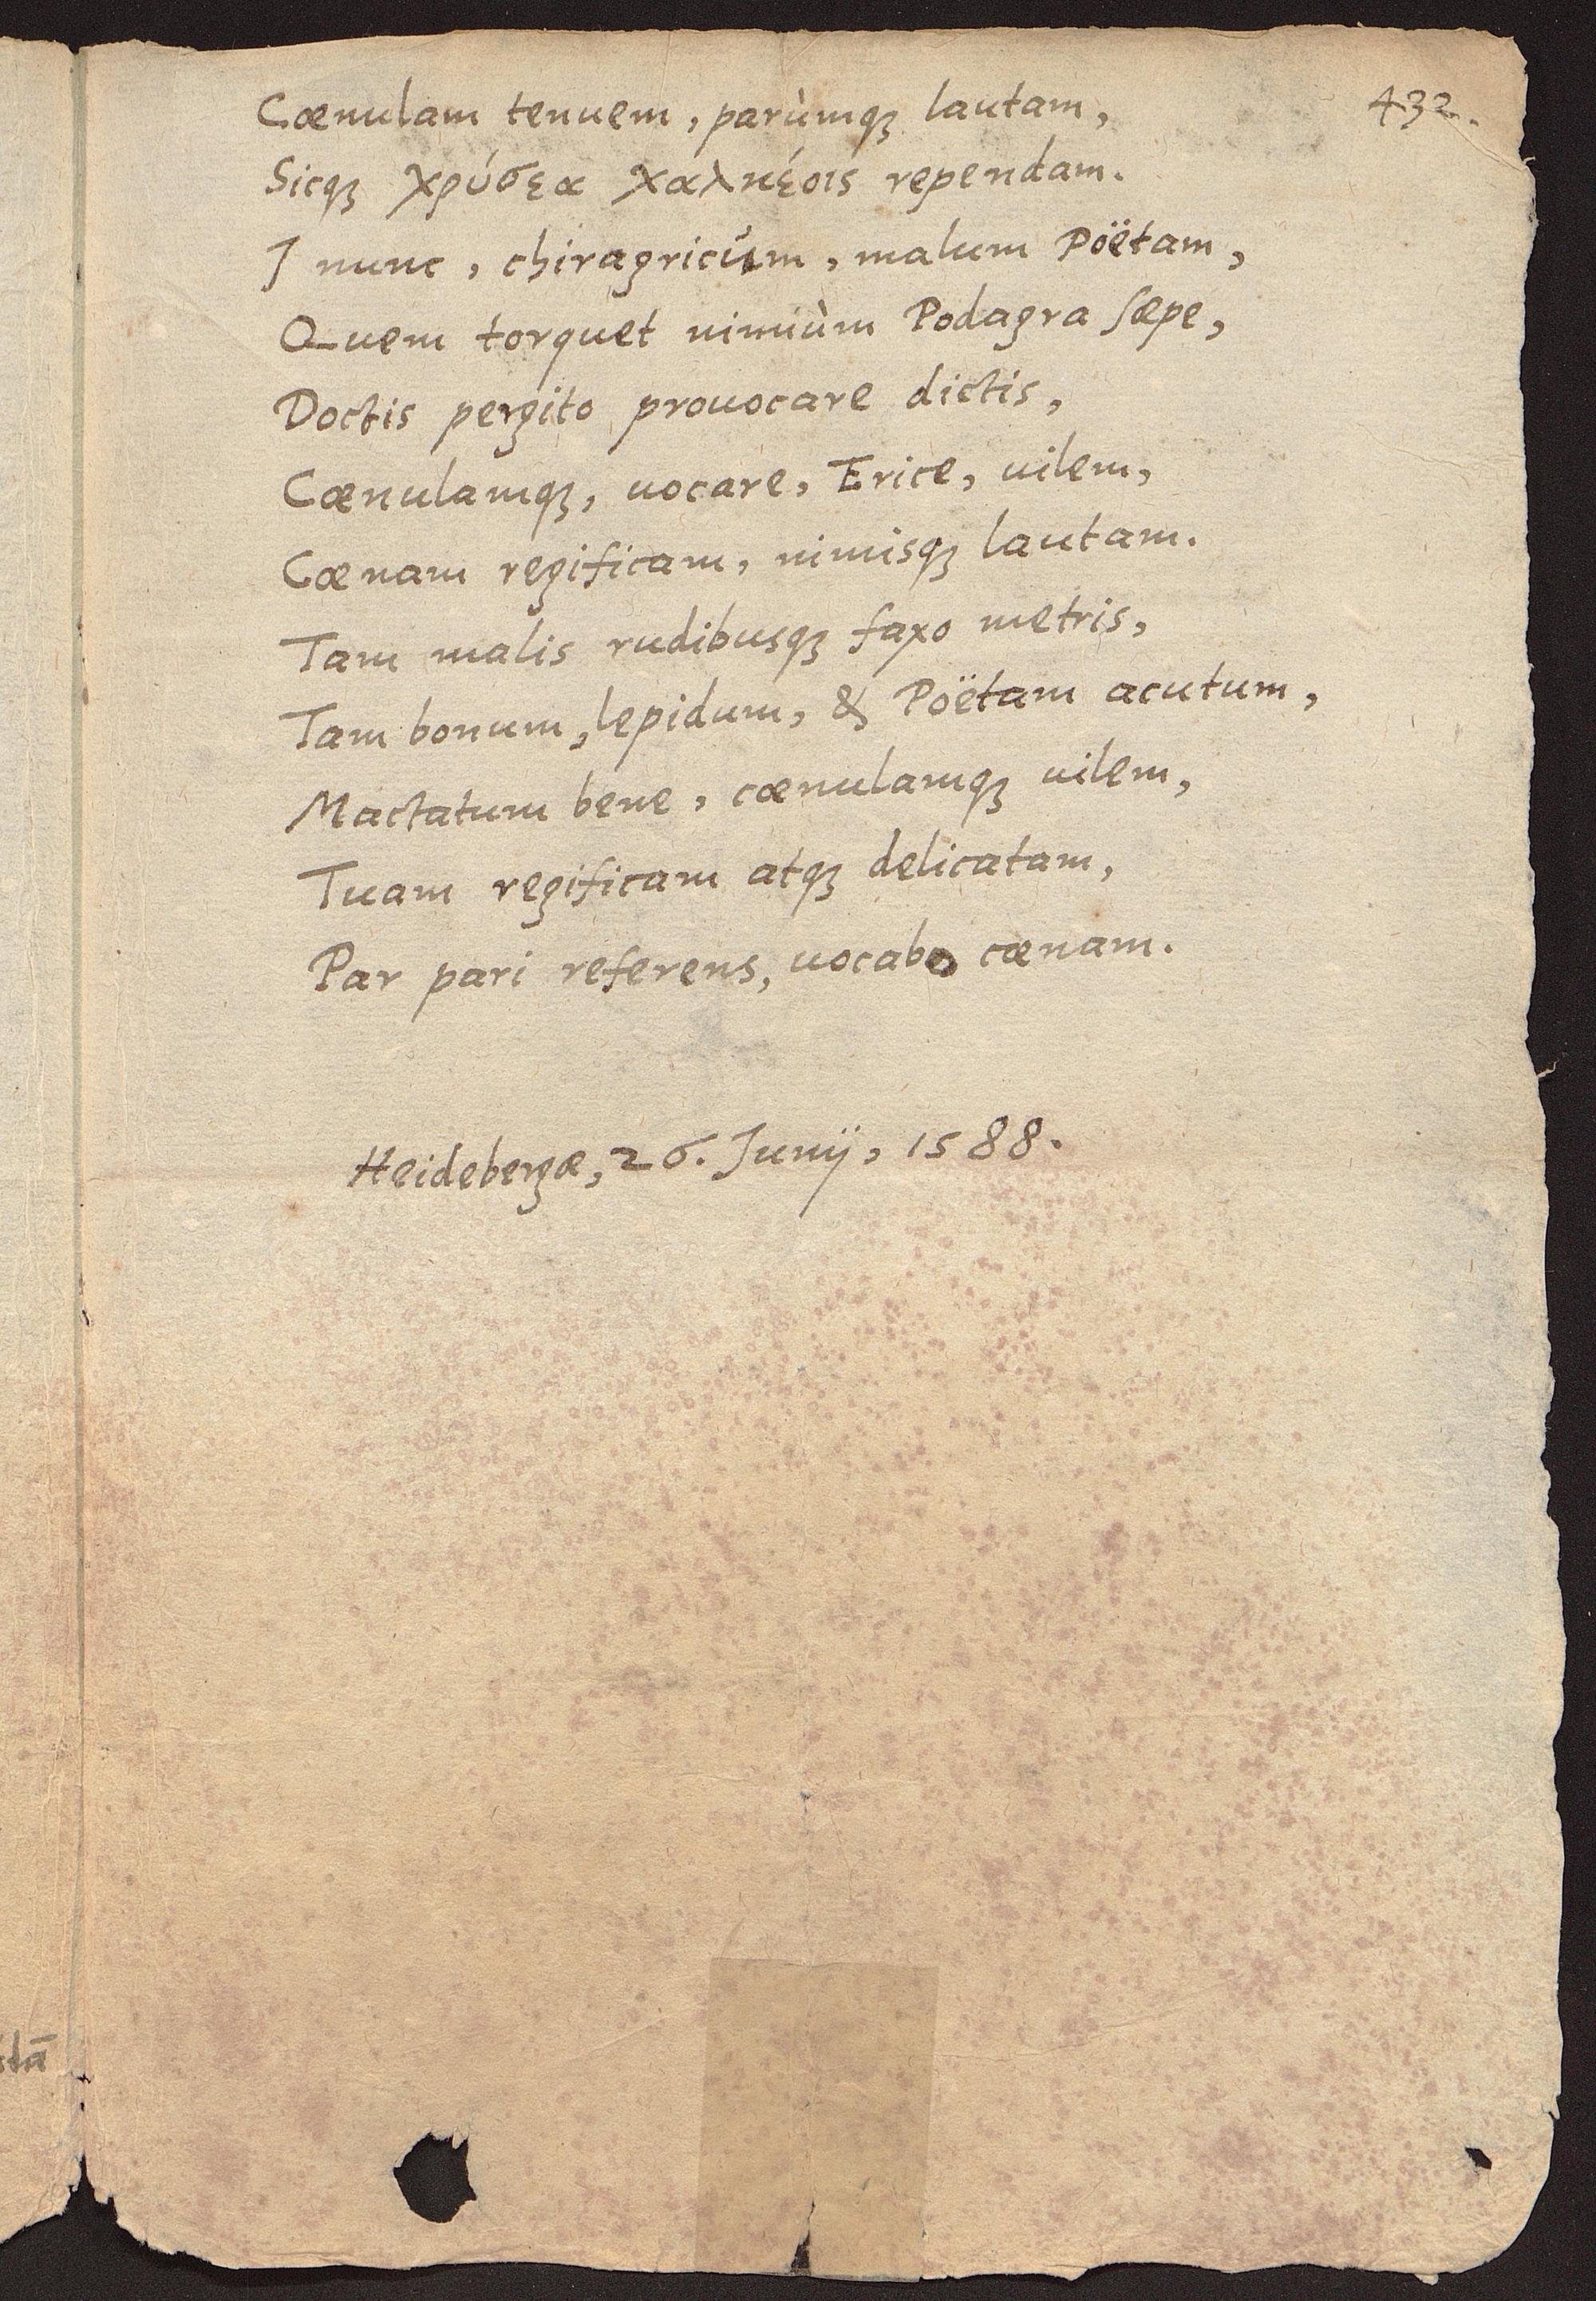 432.
Cœnulam tenuem, parùmqꝫ lautam,
Sicqꝫ χρύσεα χαλκέοις rependam.
I nunc, chiragricùm, malum Poëtam,
Quem torquet nimiùm Podagra sæpe,
Doctis pergito prouocare dictis,
Cœnulamqꝫ, uocare, Erice, uilem,
Cœnam regificam, nimisqꝫ lautam.
Tam malis rudibusqꝫ faxo metris,
Tam bonum, lepidum, & Poëtam acutum,
Mactatum bene, cœnulamqꝫ uilem,
Tuam regificam atqꝫ delicatam,
Par pari referens, uocabo cœnam.
Heidebergæ, 26. Junij, 1588.